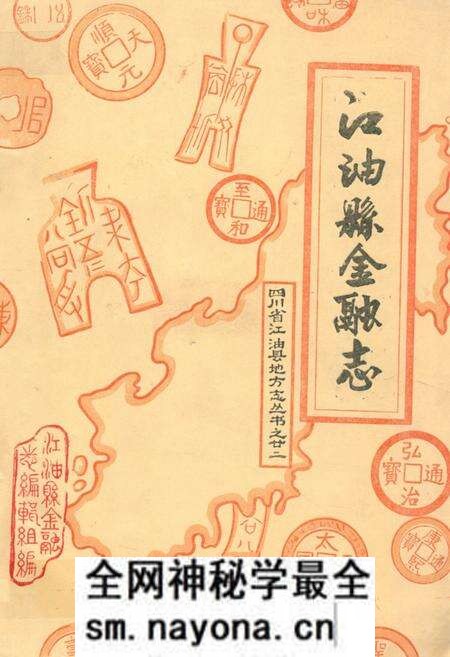 江油縣金融志
四川省江油县地方志丛书之廿二
江油縣金融
志編輯組編
順天元寶
至和通寶
弘治通寶
廿八
太
全网神秘学最全
sm.nayona.cn